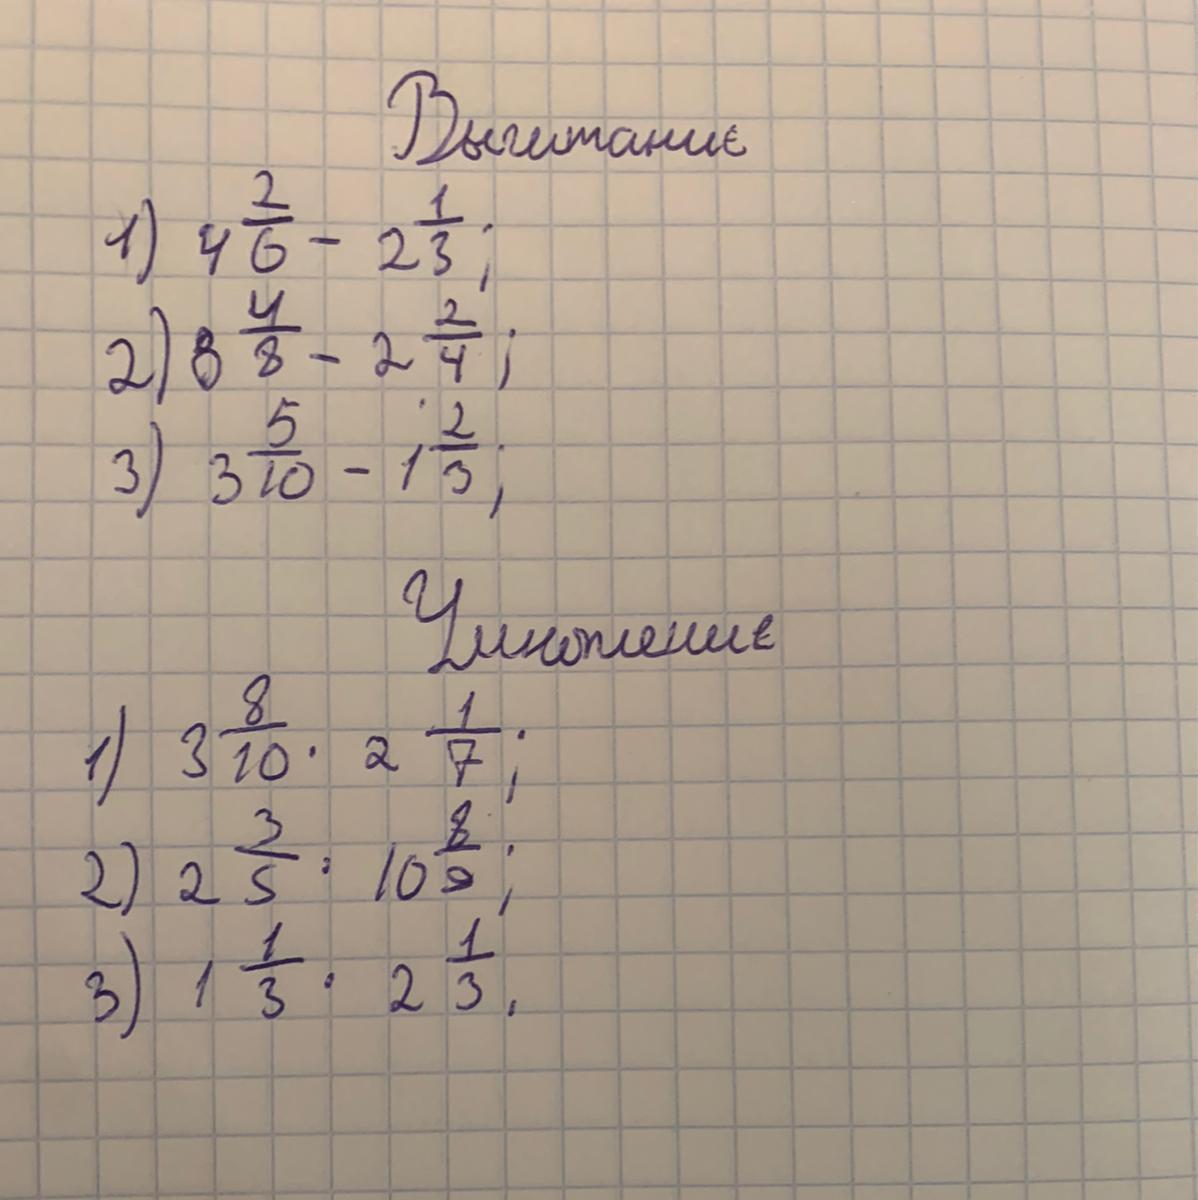 Вычитание
1) 4 2/6 - 2 1/3;
2) 8 4/8 - 2 2/4;
3) 3 5/10 - 1 2/3;
Умножение
1) 3 8/10 · 2 1/7;
2) 2 3/5 · 10 8/9;
3) 1 1/3 · 2 1/3.